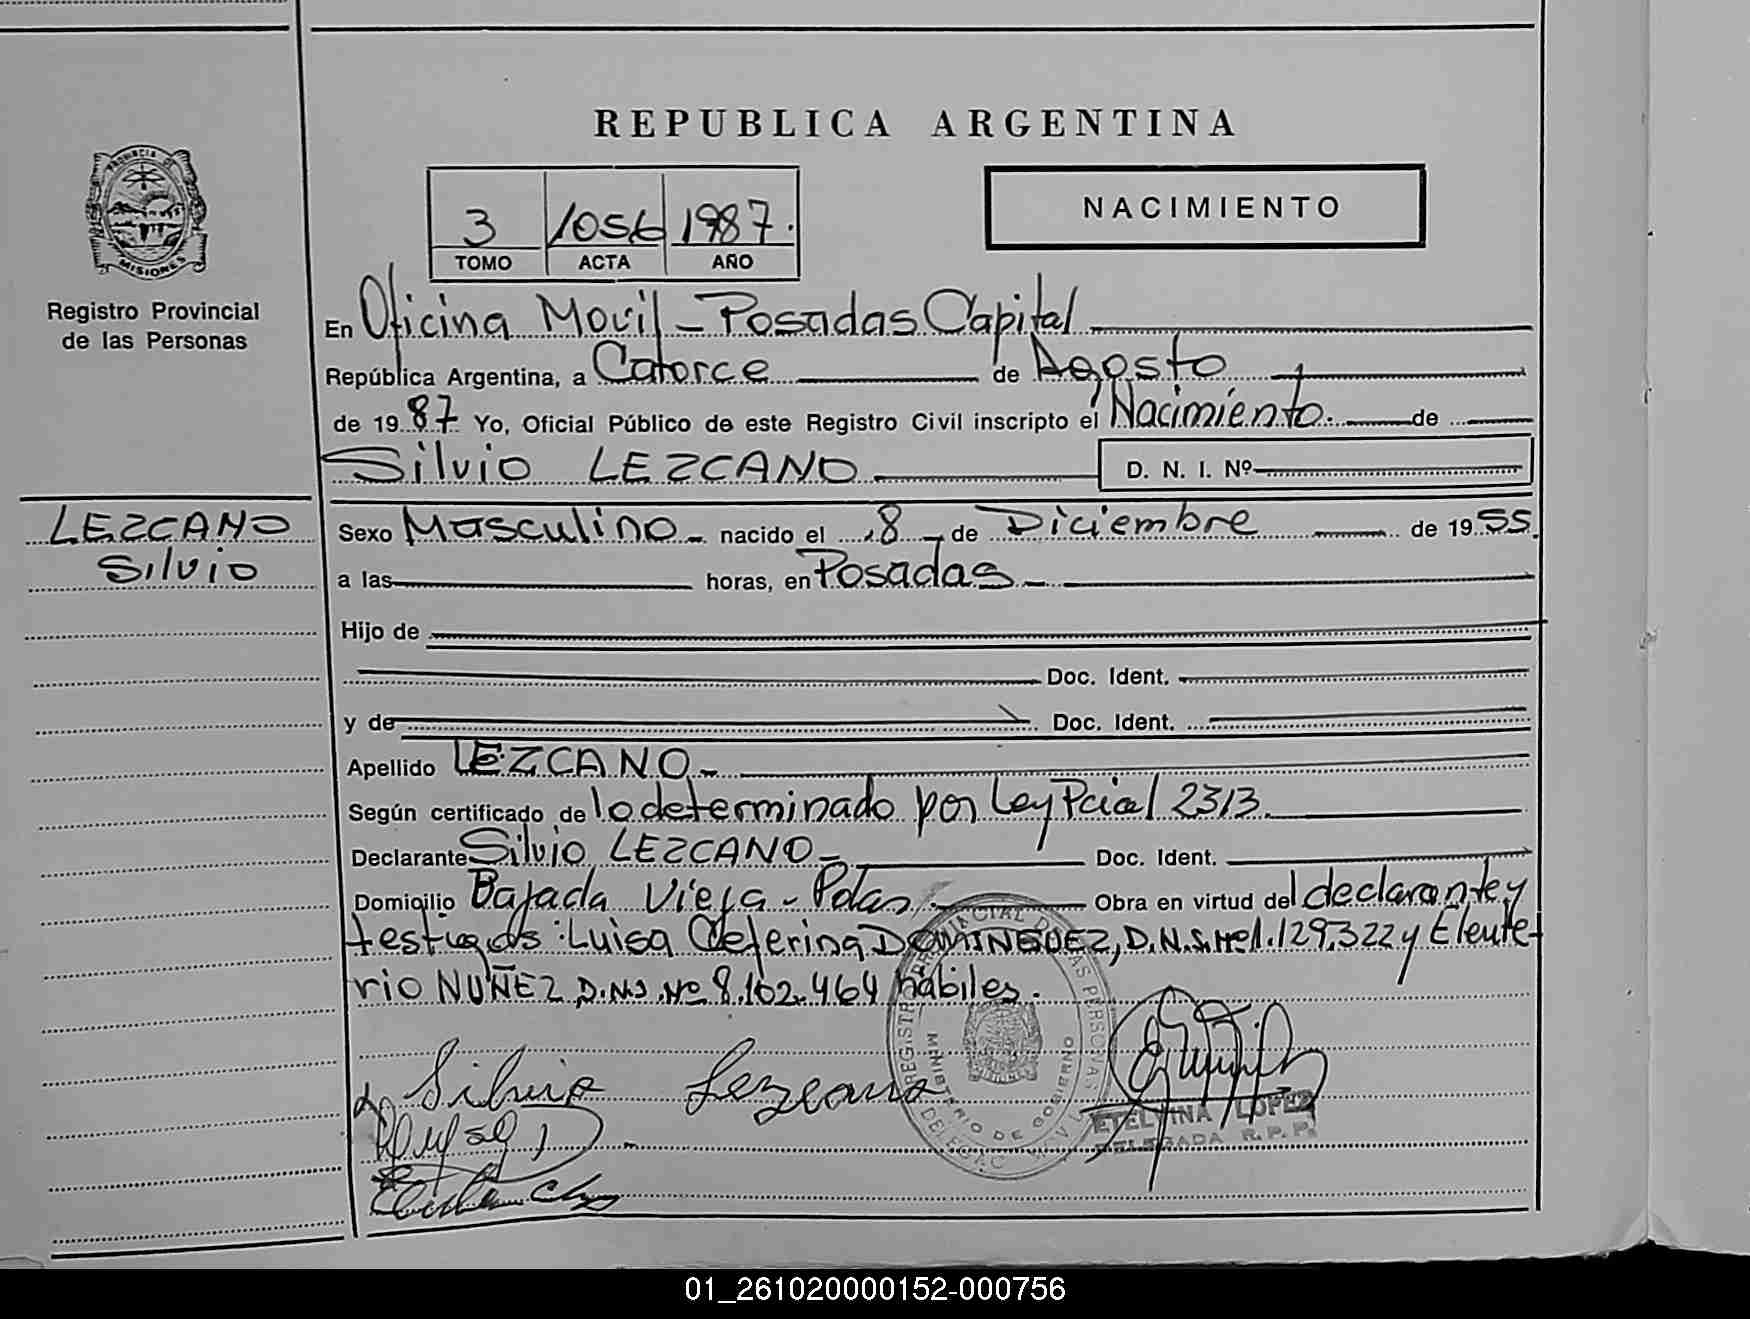 REPUBLICA ARGENTINA
PROVINCIA DE
MISIONES
Registro Provincial
de las Personas
3 1056 1987.
TOMO ACTA AÑO
NACIMIENTO
En Oficina Movil - Posadas Capital
República Argentina, a Catorce de Agosto
de 1987 Yo, Oficial Público de este Registro Civil inscripto el Nacimiento. de
Silvio LEZCANO D. N. I. Nº
LEZCANO
Silvio
Sexo Masculino - nacido el 8 - de Diciembre de 1955
a las horas, en Posadas -
Hijo de
Doc. Ident.
y de Doc. Ident.
Apellido LEZCANO -
Según certificado de lo determinado por Ley Pcial 2313.
Declarante Silvio LEZCANO - Doc. Ident.
Domicilio Bajada Vieja - Pdas. Obra en virtud del declarante y
testigos: Luisa Ceferina DOMINGUEZ, D.N.I. Nº 1.129.322 y Eleute-
rio NUÑEZ D.N.I. Nº 8.102.464 hábiles.
Silvio Lezcano
REGISTRO PROVINCIAL DE LAS PERSONAS
MINISTERIO DE GOBIERNO
ETELVINA LOPEZ
DELEGADA R.P.P.
01_261020000152-000756